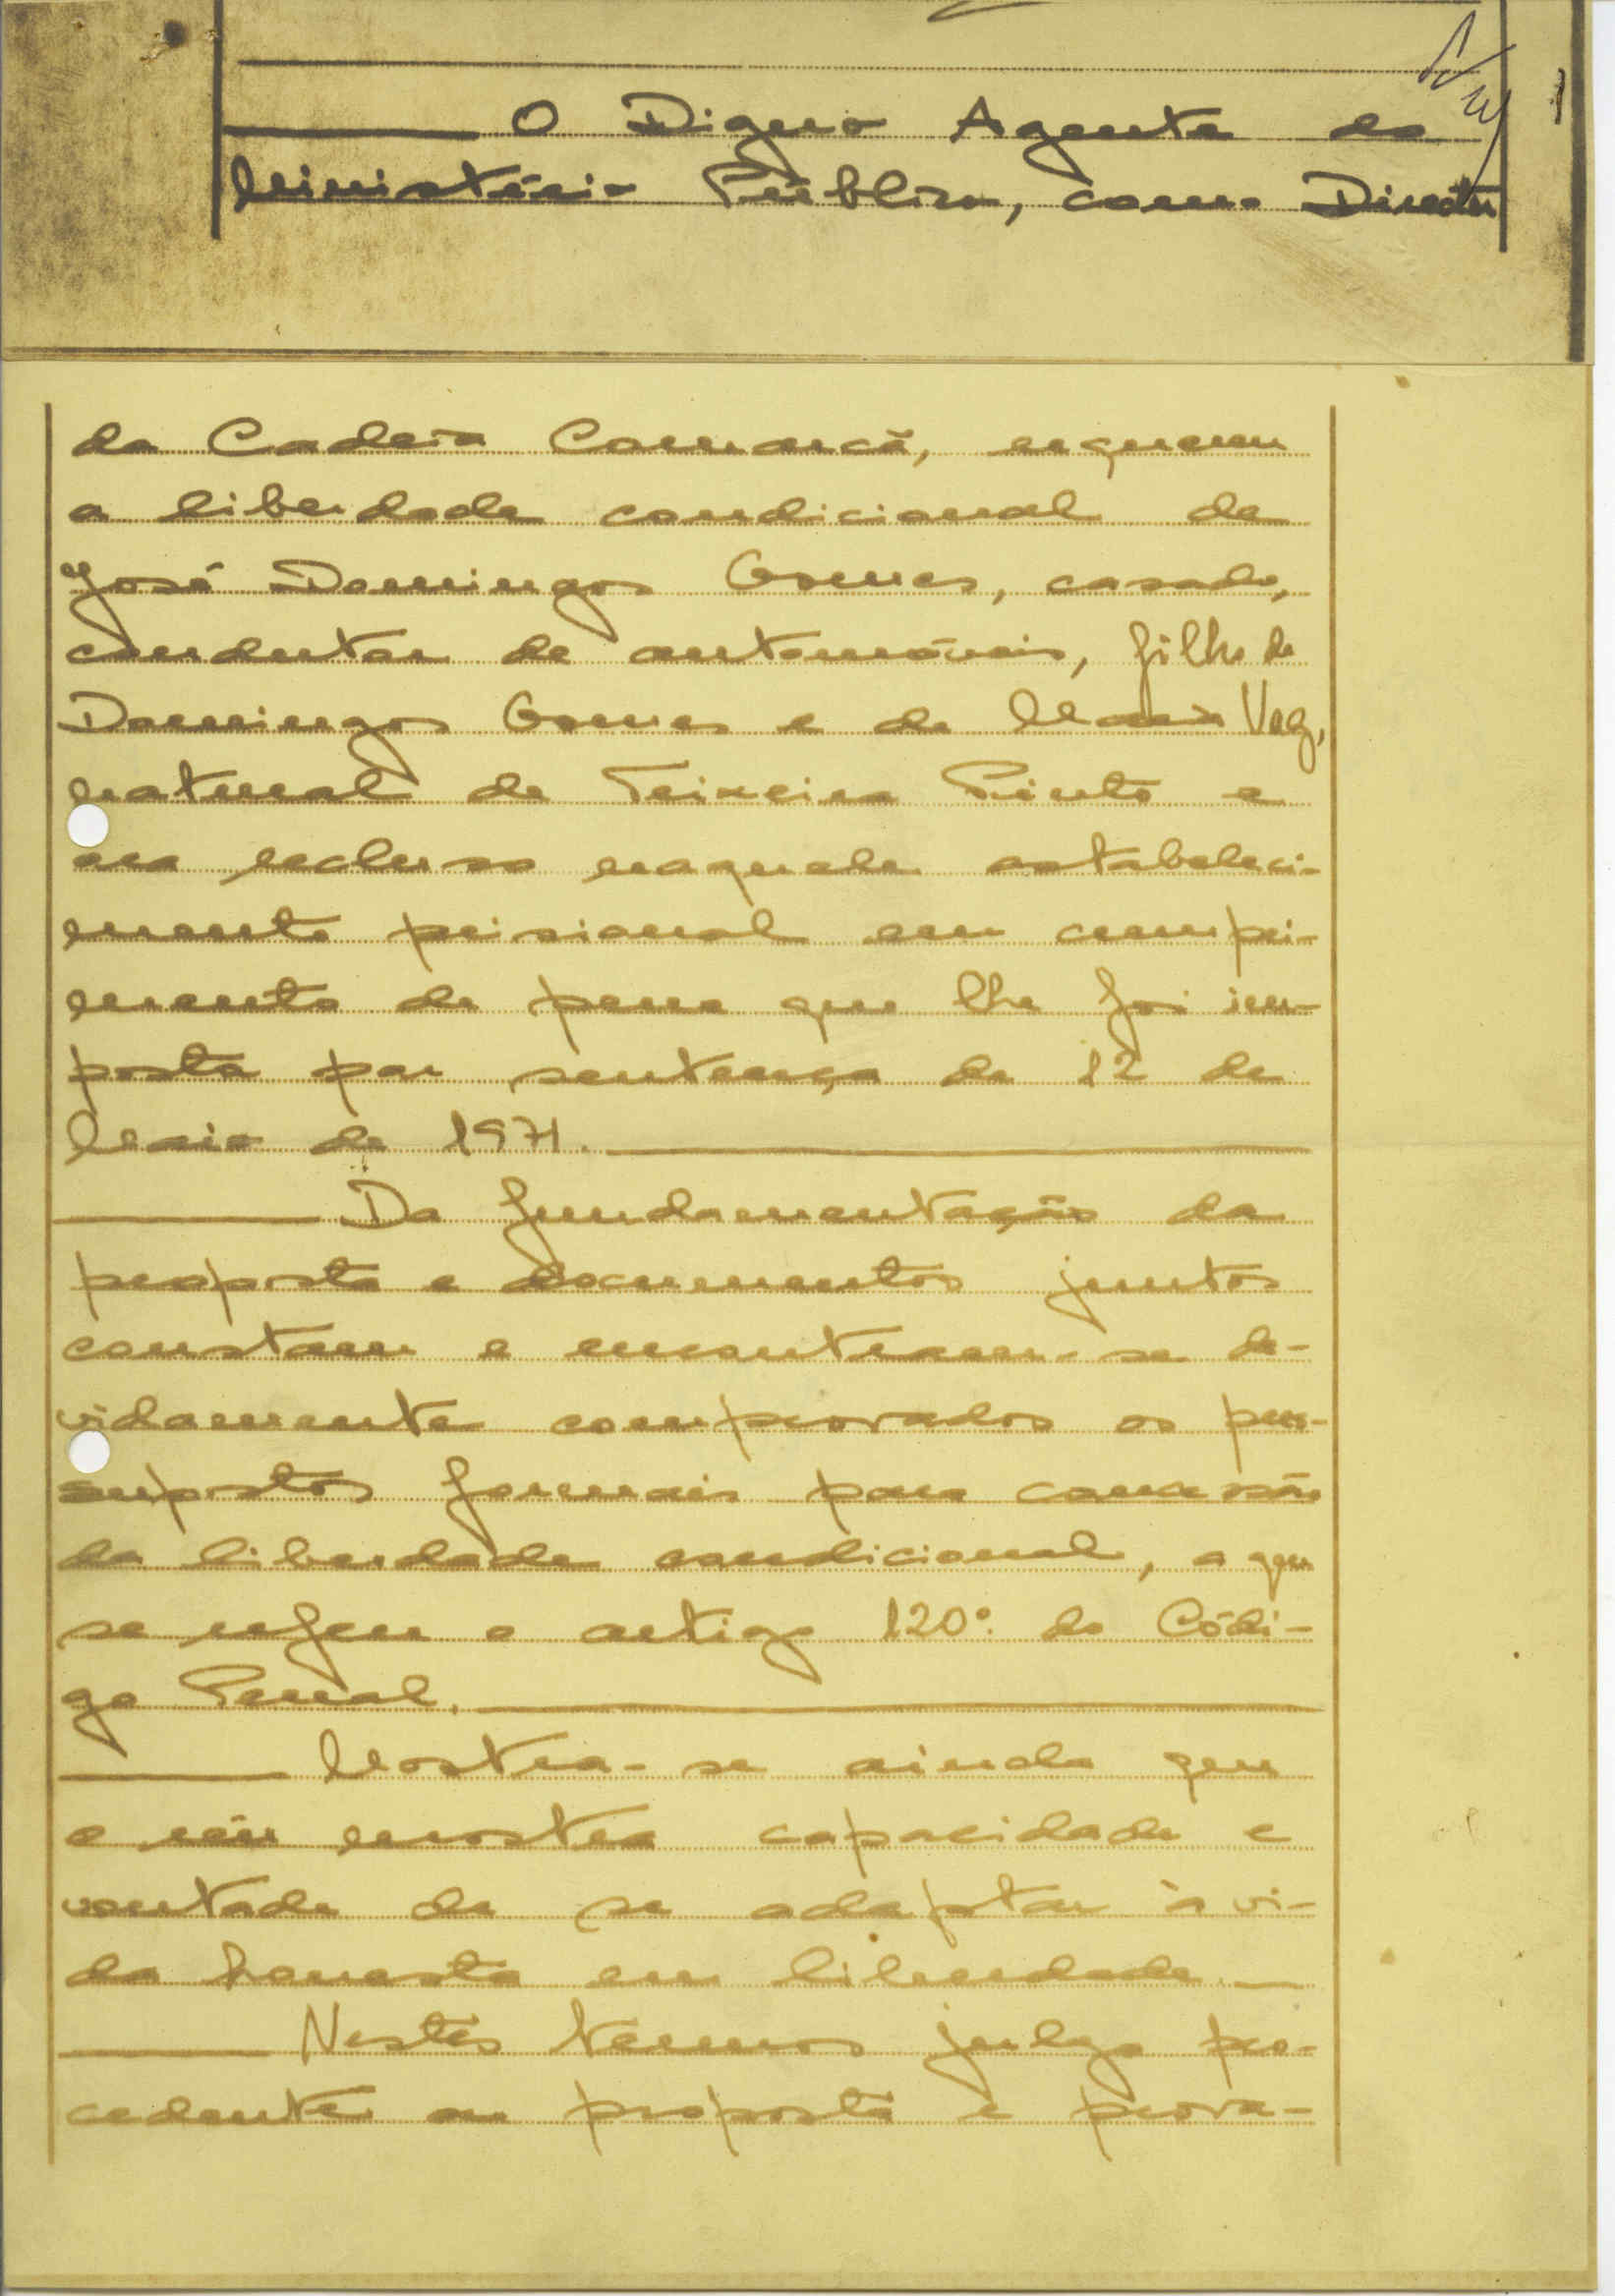 O Digno Agente do
Ministério Público, como Director
da Cadeia Comarcã, requereu
a liberdade condicional de
José Domingos Gomes, casado,
condutor de automóveis, filho de
Domingos Gomes e de Maria Vaz,
natural de Teixeira Pinto e
ora recluso naquele estabeleci-
mento prisional em cumpri-
mento de pena que lhe foi im-
posta por sentença de 12 de
Maio de 1971.
Da fundamentação da
proposta e documentos juntos
constam e encontram-se de-
vidamente comprovados os pres-
supostos formais para concessão
da liberdade condicional, a que
se refere o artigo 120º. do Códi-
go Penal.
Mostra-se ainda que
o réu mostra capacidade e
vontade de se adaptar à vi-
da honesta em liberdade.
Nestes termos julgo pro-
cedente a proposta e prova-